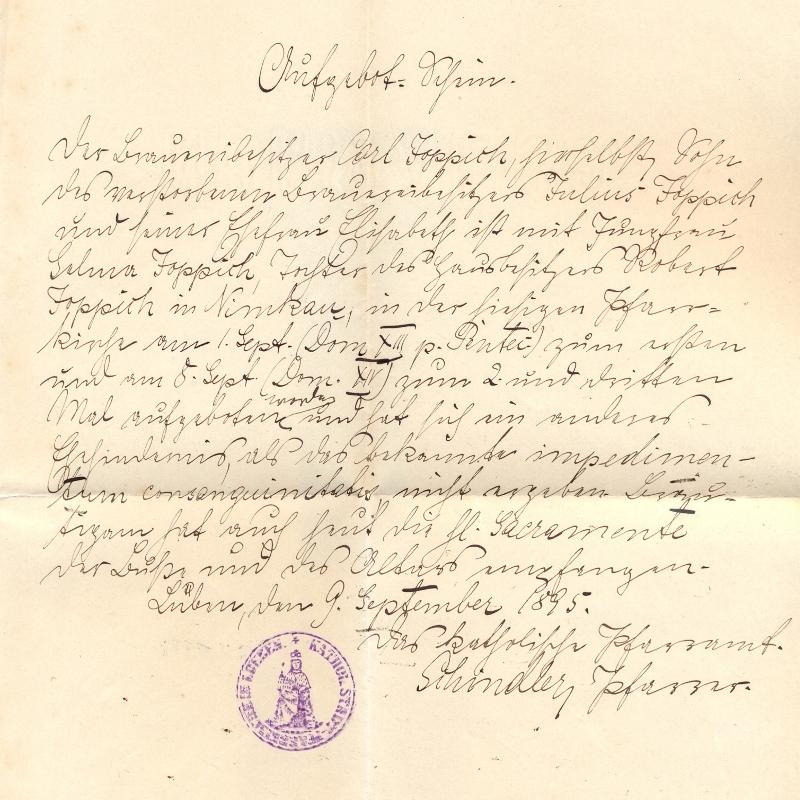 Aufgebot-Schein.
Der Brauereibesitzer Carl Foppich, hierselbst, Sohn
des verstorbenen Brauereibesitzers Julius Foppich
und seiner Ehefrau Elisabeth ist mit Jungfrau
Selma Foppich, Tochter des Hausbesitzers Robert
Foppich in Nimkau, in der hiesigen Pfarr-
kirche am 1. Sept. (Dom XIII p. Pentec.) zum ersten
und am 8. Sept. (Dom. XIV) zum 2. und dritten
Mal aufgeboten worden und hat sich ein anderes
Ehehindernis, als das bekannte impedimen-
tum consanguinitatis, nicht ergeben. Bräu-
tigam hat auch heut die hl. Sacramente
der Buße und des Altars empfangen.
Lüben, den 9. September 1895.
Das katholische Pfarramt.
Schindler, Pfarrer.
KATHOL. STADT